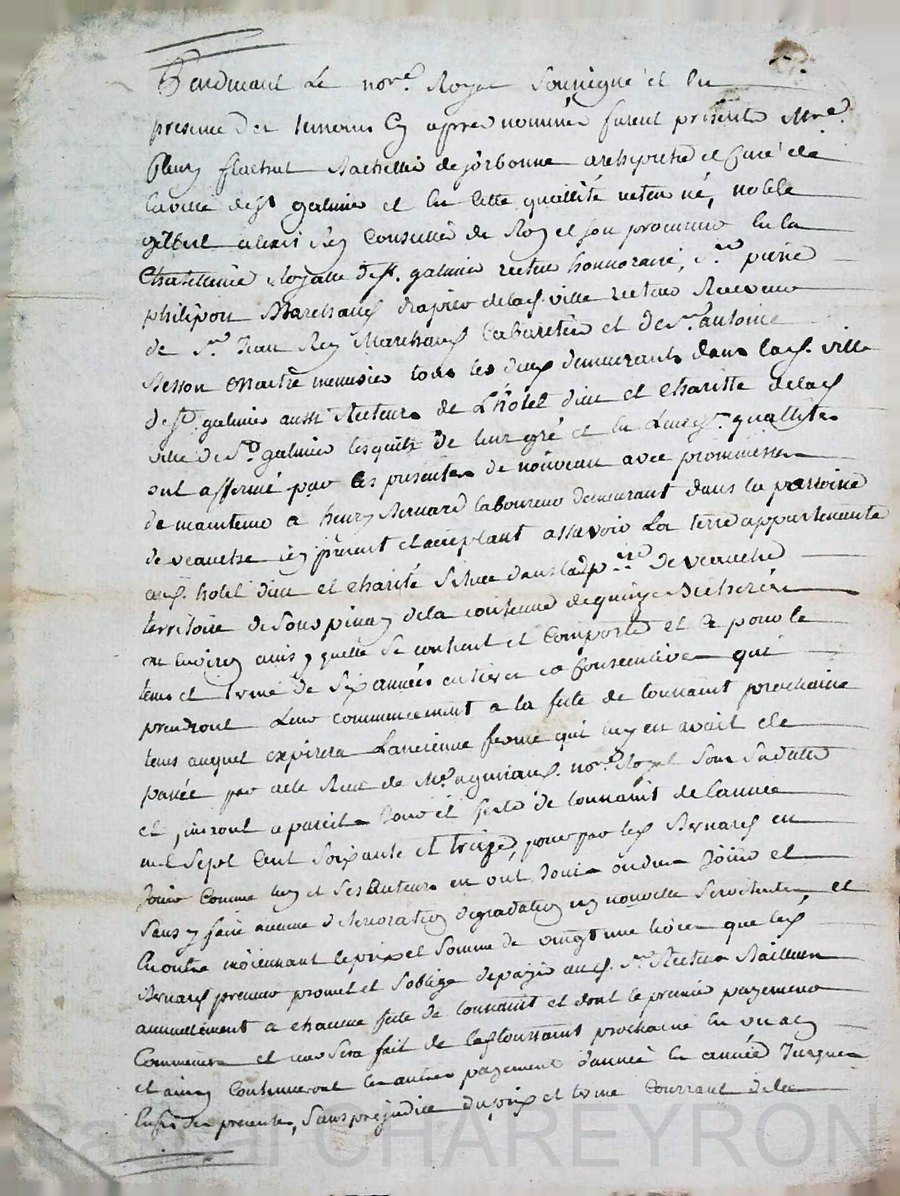 Pardevant Le no.re Royal Soussigné et En
presence des temoins Cy apres nommés furent presents M.re
fleury flachat Bachellier de sorbonne archiprêtre et Curé de
la ville de S.t galmier et En Cette quallité recteur né, noble
gilbert alexis Rey Conseiller du Roy et son procureur En la
Chatellenie Royalle de S.t galmier recteur honnoraire, S.r pierre
philipon Marchand drapier de lad. ville recteur Receveur
de S.r Jean Rey Marchand Cabaretier et de S.r antoine
Besson Maitre menusier tous les deux demeurants dans lad. ville
de S.t galmier aussi Recteurs de L'hôtel dieu et Charitté de lad.
ville de S.t galmier lesquels de leur gré et En Leursd. quallités
ont affermé par les presentes de nouveau avec prommesses
de maintenir a henry Bernard laboureur demeurant dans la parroisse
de veauche icy present et acceptant assavoir La terre appartenante
aud. hotel dieu et charité Située dans lad. p.sse de veauche
territoire de Soupinay de la contenue de quinze Bicherées
ou Environ ainsy quelle Se contient et Comporte et ce pour le
tems et terme de Six années entieres et Consecutives qui
prendront Leur commencement a la fete de toussaint prochaine
tems auquel expirera L'ancienne ferme qui luy en avait eté
passée par acte Recu de M.e no.re Royal Sous Sa datte
et finiront a pareil Jour et fete de toussaint de L'année
mil Sept Cent Soixante et treize, pour par led. Bernard en
Jouir Comme luy et Ses auteurs en ont Joui ou du Jouir et
Sans y faire aucune deterioration degradation ny nouvelle Servitude et
En outre moiennant le prix et Somme de vingt une livres que led.
Bernard preneur promet et S'oblige de payer aud. S.rs Recteurs Bailleurs
annuellement a chacune fete de toussaint et dont le premier payement
Commencera et sera fait de lad. toussaint prochaine En un an
et ainsy Continueront les autres payements d'année En année Jusques
En fin des presentes, Sans prejudice du prix et terme Courrant de la
Pascal CHAREYRON